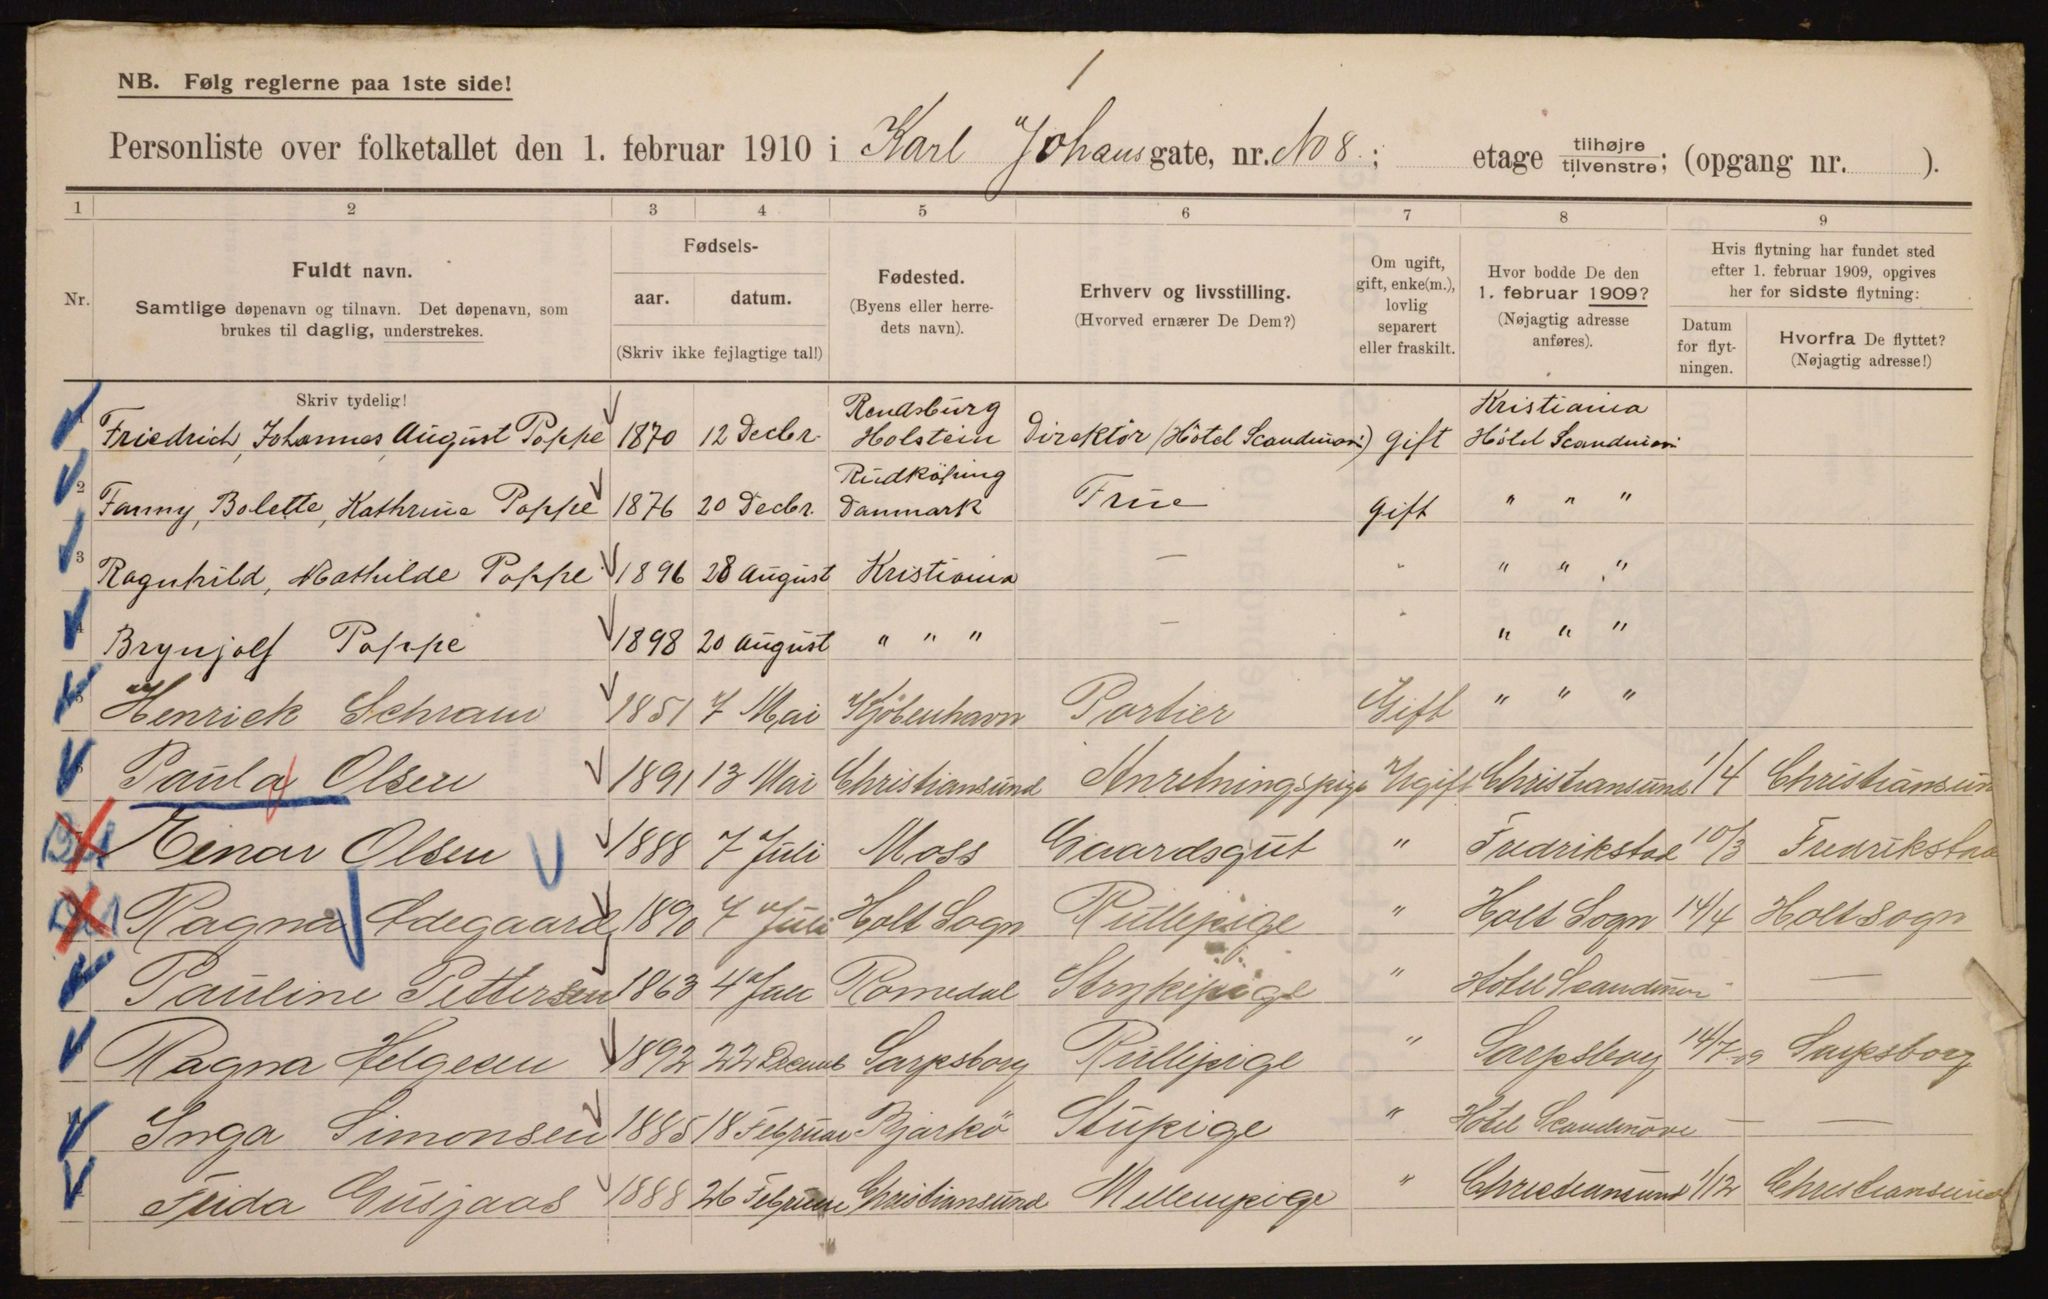 1
NB. Følg reglerne paa 1ste side!
Personliste over folketallet den 1. februar 1910 i Karl Johansgate, nr. No 8; etage tilhøjre tilvenstre; (opgang nr. ).
1 2 3 4 5 6 7 8 9
Nr.
Fuldt navn.
Samtlige døpenavn og tilnavn. Det døpenavn, som
brukes til daglig, understrekes.
Skriv tydelig!
Fødsels-
aar. datum.
(Skriv ikke fejlagtige tal!)
Fødested.
(Byens eller herre-
dets navn).
Erhverv og livsstilling.
(Hvorved ernærer De Dem?)
Om ugift,
gift, enke(m.),
lovlig
separert
eller fraskilt.
Hvor bodde De den
1. februar 1909?
(Nøjagtig adresse
anføres).
Hvis flytning har fundet sted
efter 1. februar 1909, opgives
her for sidste flytning:
Datum
for flyt-
ningen.
Hvorfra De flyttet?
(Nøjagtig adresse!)
1 Friedrich, Johannes August Poppe 1870 12 Decbr. Rendsburg Holstein Direktör (Hôtel Scandinavi) gift Kristiania Hôtel Scandinavi
2 Fanny, Bolette, Kathrine Poppe 1876 20 Decbr. Rudköping Danmark Frue gift " " "
3 Ragnhild, Mathilde Poppe 1896 28 August Kristiania — " " " "
4 Brynjolf Poppe 1898 20 August " " " — " " " "
5 Henrick Schram 1851 7 Mai Kjöbenhavn Portier Gift " " "
6 Paula Olsen 1891 13 Mai Christiansund Anretningspige Ugift Christiansund 1/4 Christiansun
Einar Olsen 1888 7 Juli Moss Gaardsgut " Fredrikstad 10/3 Fredrikstad
Ragna Ødegaard 1890 7 Juli Holt Sogn Rullepige " Holt Sogn 14/4 Holt Sogn
Pauline Pettersen 1863 4 Jan Romedal Strykepige " Hotel Scandinavi —
Ragna Helgesen 1892 22 Decemb Sarpsborg Rullepige " Sarpsborg 14/7-09 Sarpsborg
Inga Simonsen 1885 18 Februar Bjarkö Stupige " Hotel Scandinavi — —
1888 26 Februar Christiansund Mellempige " Christiansund 1/12 Christiansund